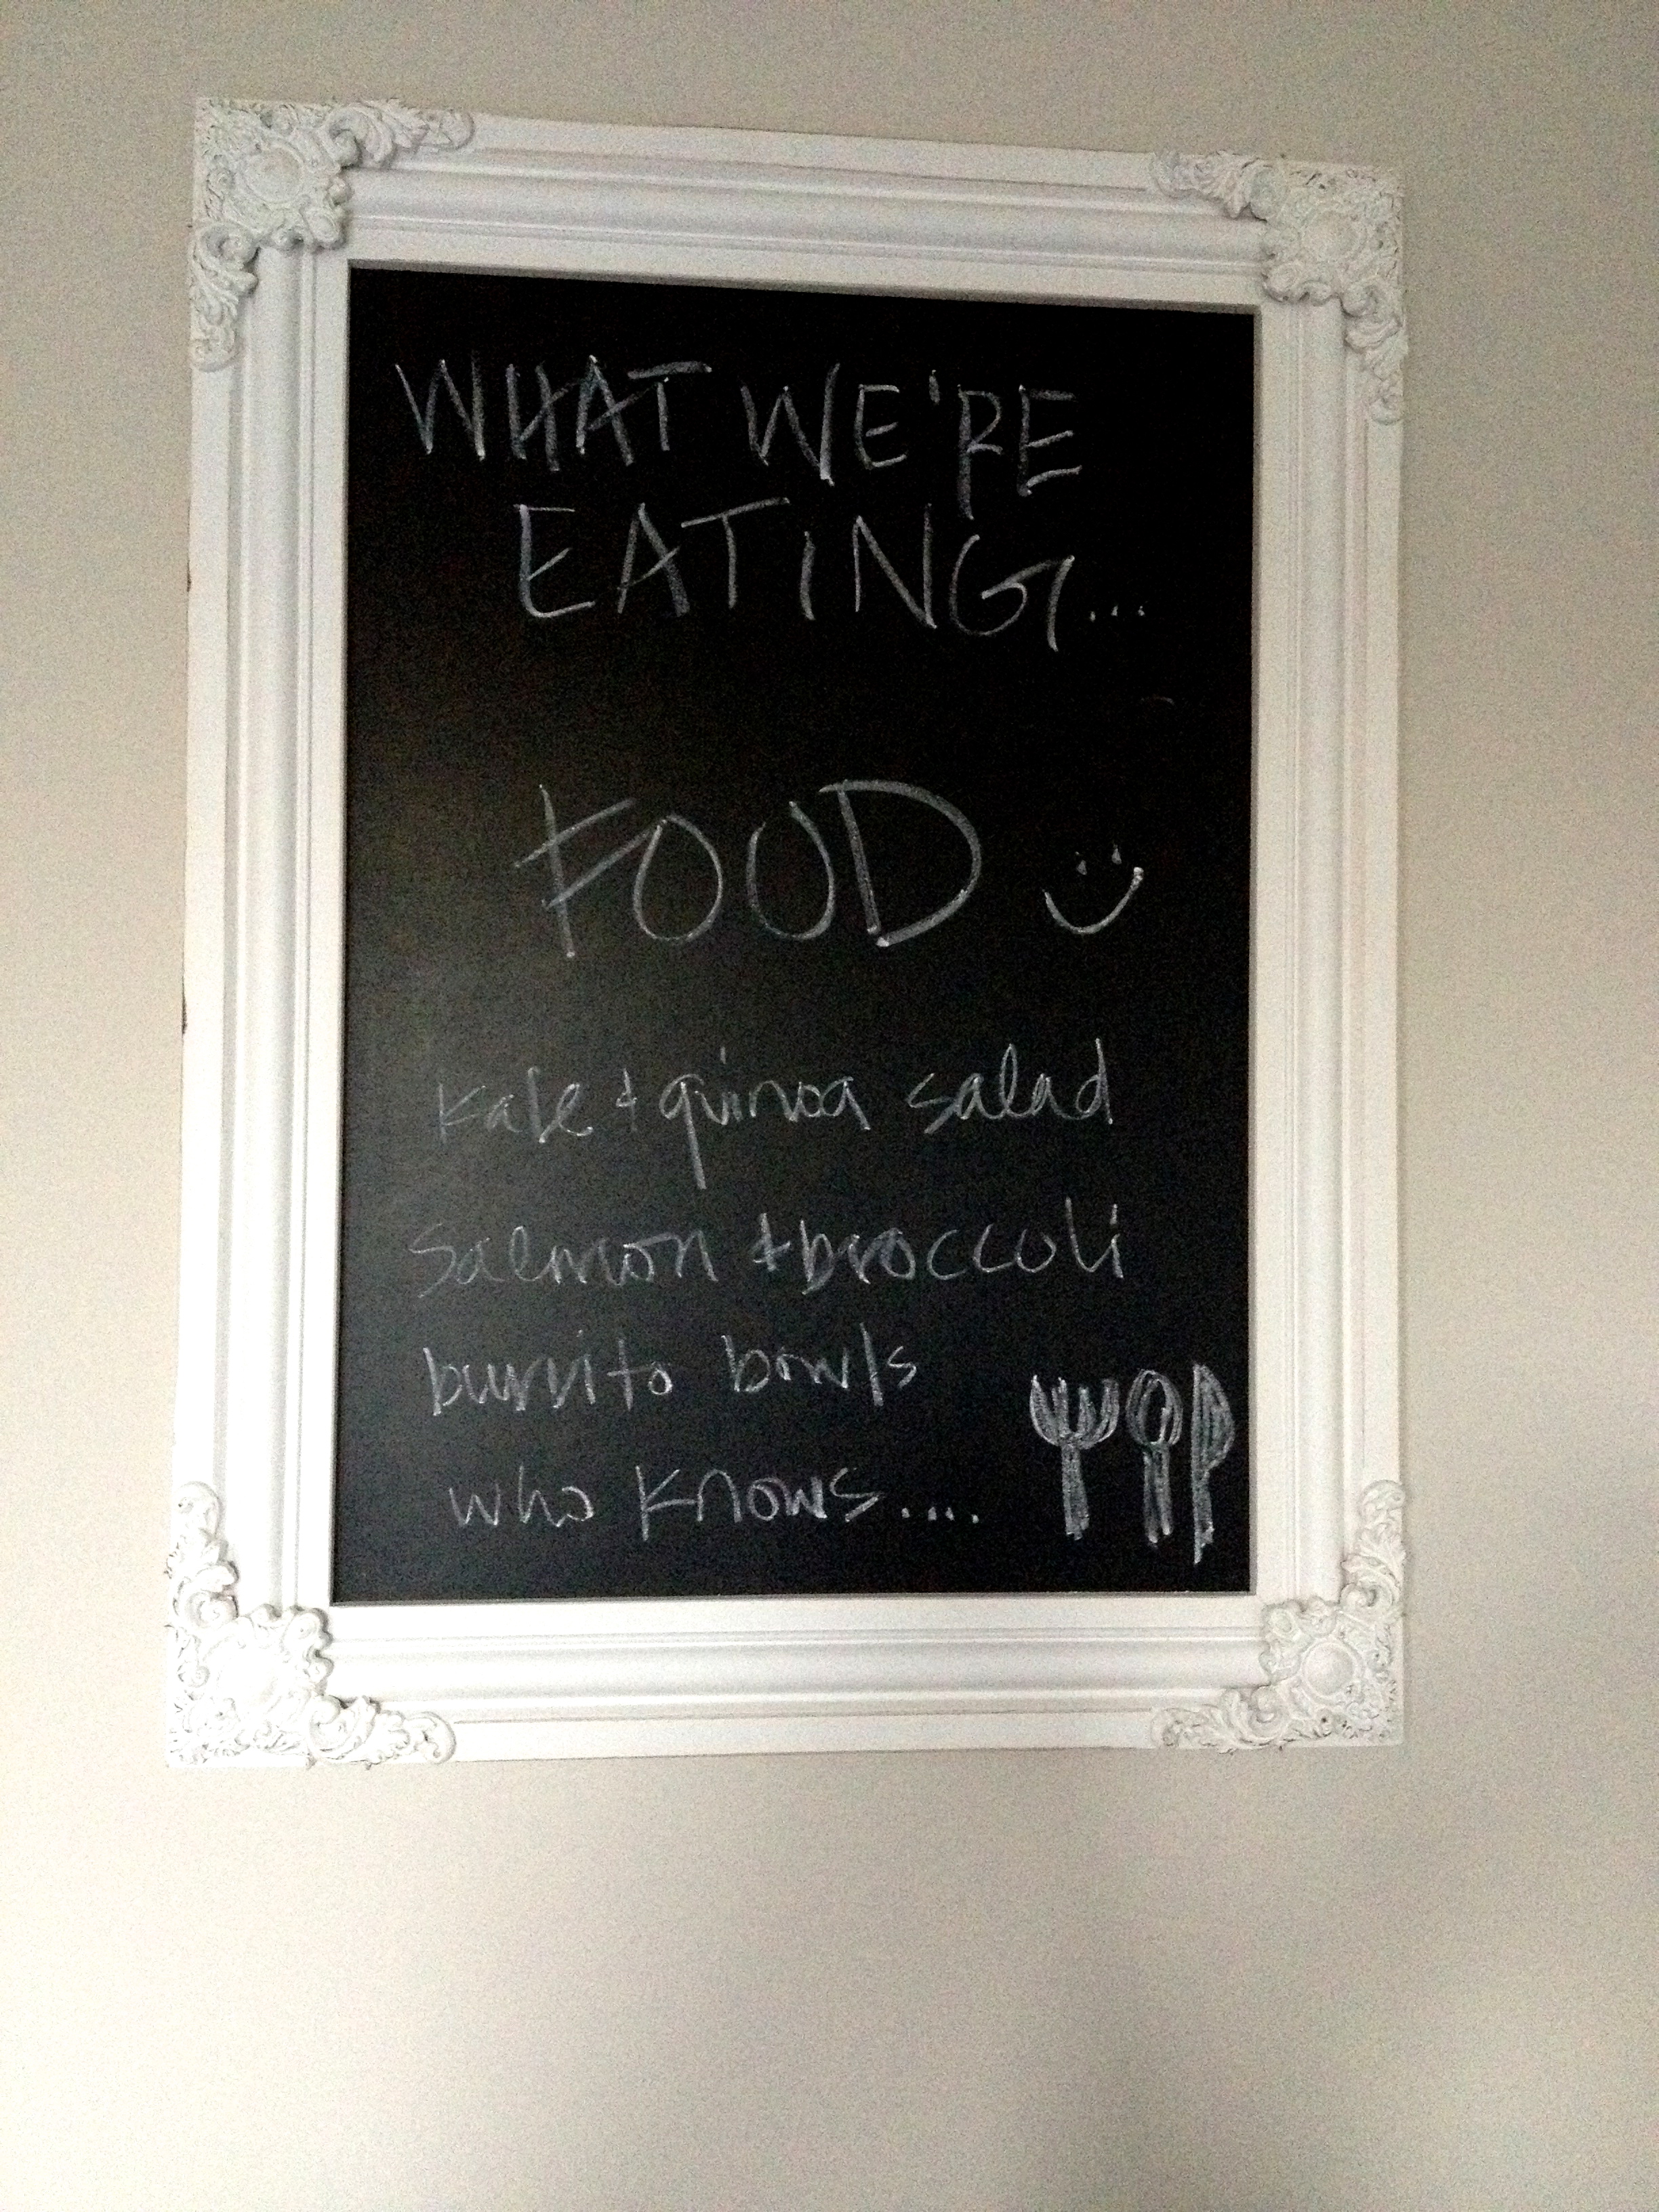 WHAT WE'RE
EATING...
FOOD :)
Kale + quinoa salad
Salmon + broccoli
burrito bowls
who knows....